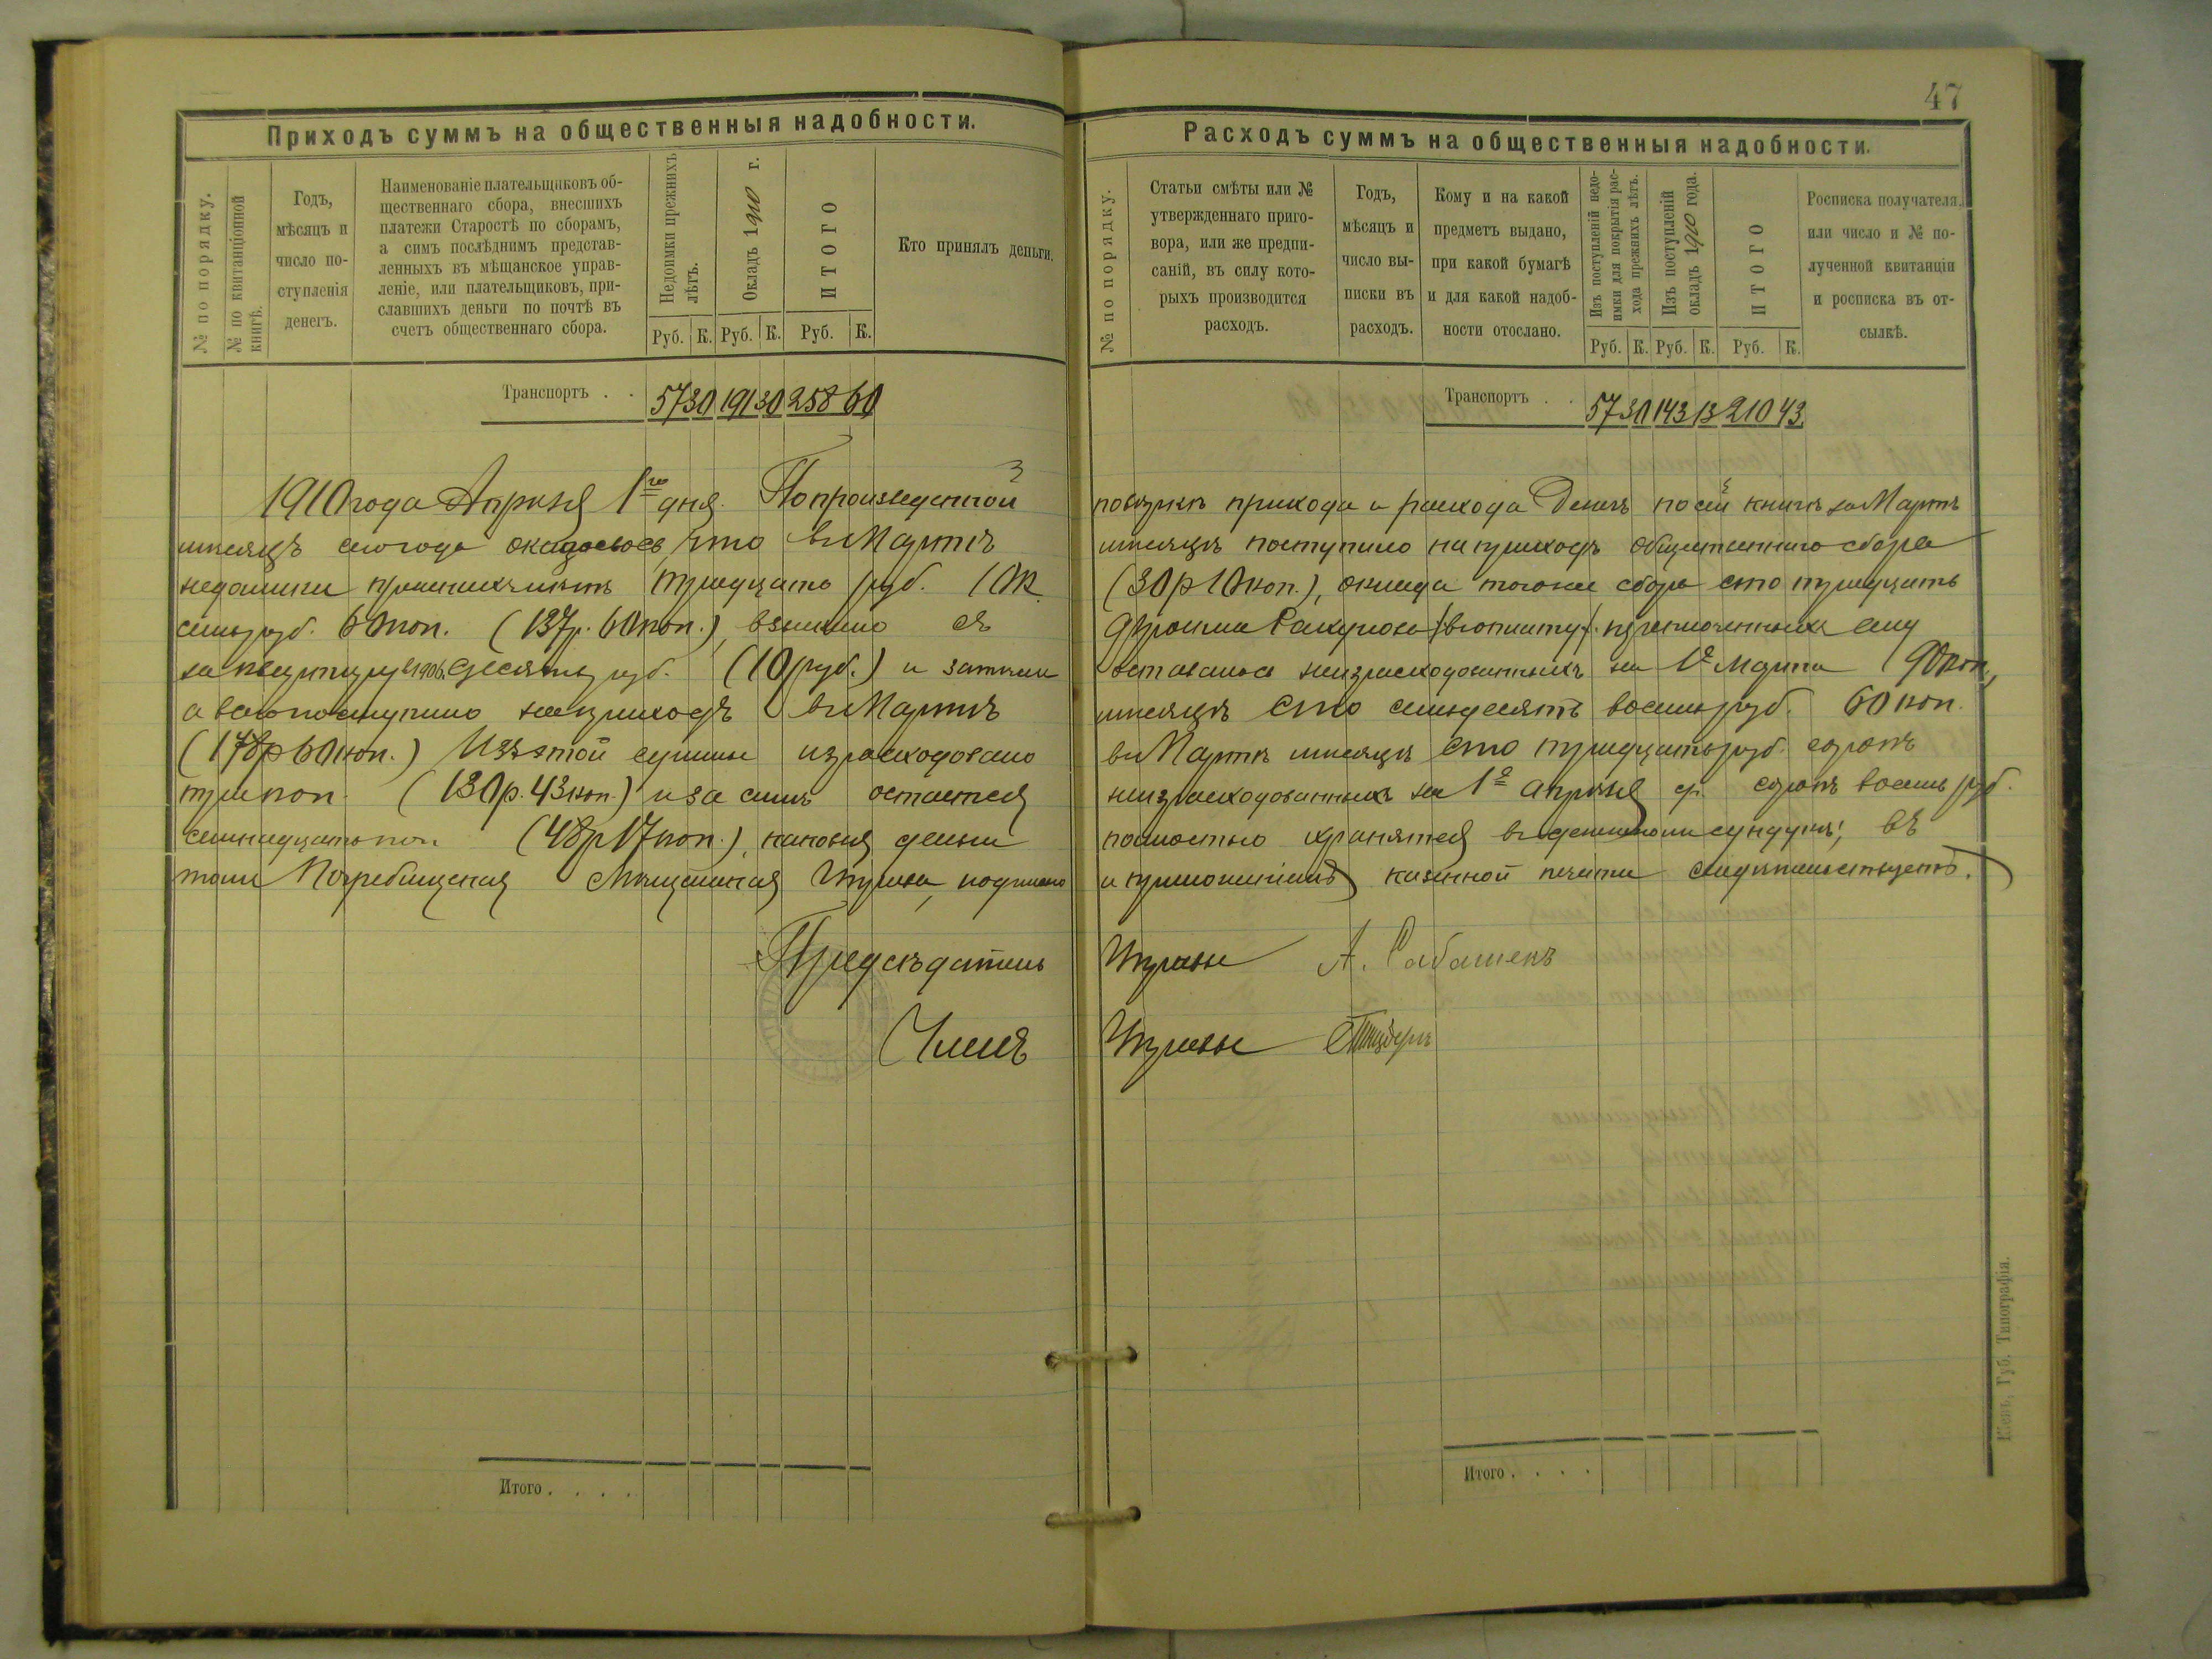 47
Приходъ суммъ на общественныя надобности.
№ по порядку.
№ по квитанціонной
книгѣ.
Годъ,
мѣсяцъ и
число по-
ступленія
денегъ.
Наименованіе плательщиковъ об-
щественнаго сбора, внесшихъ
платежи Старостѣ по сборамъ,
а симъ послѣднимъ представ-
ленныхъ въ мѣщанское управ-
леніе, или плательщиковъ, при-
славшихъ деньги по почтѣ въ
счетъ общественнаго сбора.
Недоимки прежнихъ
лѣтъ.
Окладъ 1910 г.
ИТОГО
Кто принялъ деньги.
Руб. К. Руб. К. Руб. К.
Транспортъ . . 57 30 191 30 258 60
Расходъ суммъ на общественныя надобности.
№ по порядку.
Статьи смѣты или №
утвержденнаго приго-
вора, или же предпи-
саній, въ силу кото-
рыхъ производится
расходъ.
Годъ,
мѣсяцъ и
число вы-
писки въ
расходъ.
Кому и на какой
предметъ выдано,
при какой бумагѣ
и для какой надоб-
ности отослано.
Изъ поступленій недо-
имки для покрытія рас-
хода прежнихъ лѣтъ.
Изъ поступленій
окладъ 1910 года.
ИТОГО
Росписка получателя,
или число и № по-
лученной квитанціи
и росписка въ от-
сылкѣ.
Руб. К. Руб. К. Руб. К.
Транспортъ . . 57 30 143 13 210 43
1910 года Апрѣля 1го дня. По произведенной повѣрки прихода и расхода Денегъ по сей книгѣ за Мартъ
мѣсяцъ сего года оказалось, что въ Мартѣ мѣсяцѣ поступило на приходъ общественнаго сбора
недоимки прежнихъ лѣтъ тридцать руб. 10 к. (30 р 10 коп.), оклада того же сбора сто тридцать
семь руб. 60 коп. (137 р. 60 коп.), взыскано съ
за 1906 г. десять руб. (10 руб.) и затѣмъ оставалось неизрасходованныхъ на 1е Марта 90 коп.,
а всего поступило на приходъ въ Мартѣ мѣсяцѣ сто семьдесятъ восемь руб. 60 коп.
(178 р 60 коп.) Изъ этой суммы израсходовано въ Мартѣ мѣсяцѣ сто тридцать руб. сорокъ
три коп. (130 р. 43 коп.) и за симъ остается неизрасходованныхъ на 1е Апрѣля с. г. сорокъ восемь руб.
семнадцать коп. (48 р 17 коп.), каковыя деньги полностью хранятся въ денежномъ сундукѣ; въ
томъ Погребищская Мѣщанская Управа, подписью и приложеніемъ казенной печати свидѣтельствуетъ.
Предсѣдатель Управы А. Сабашекъ
Членъ Управы
Итого . . . .
Итого . . . .
Кіевъ, Губ. Типографія.